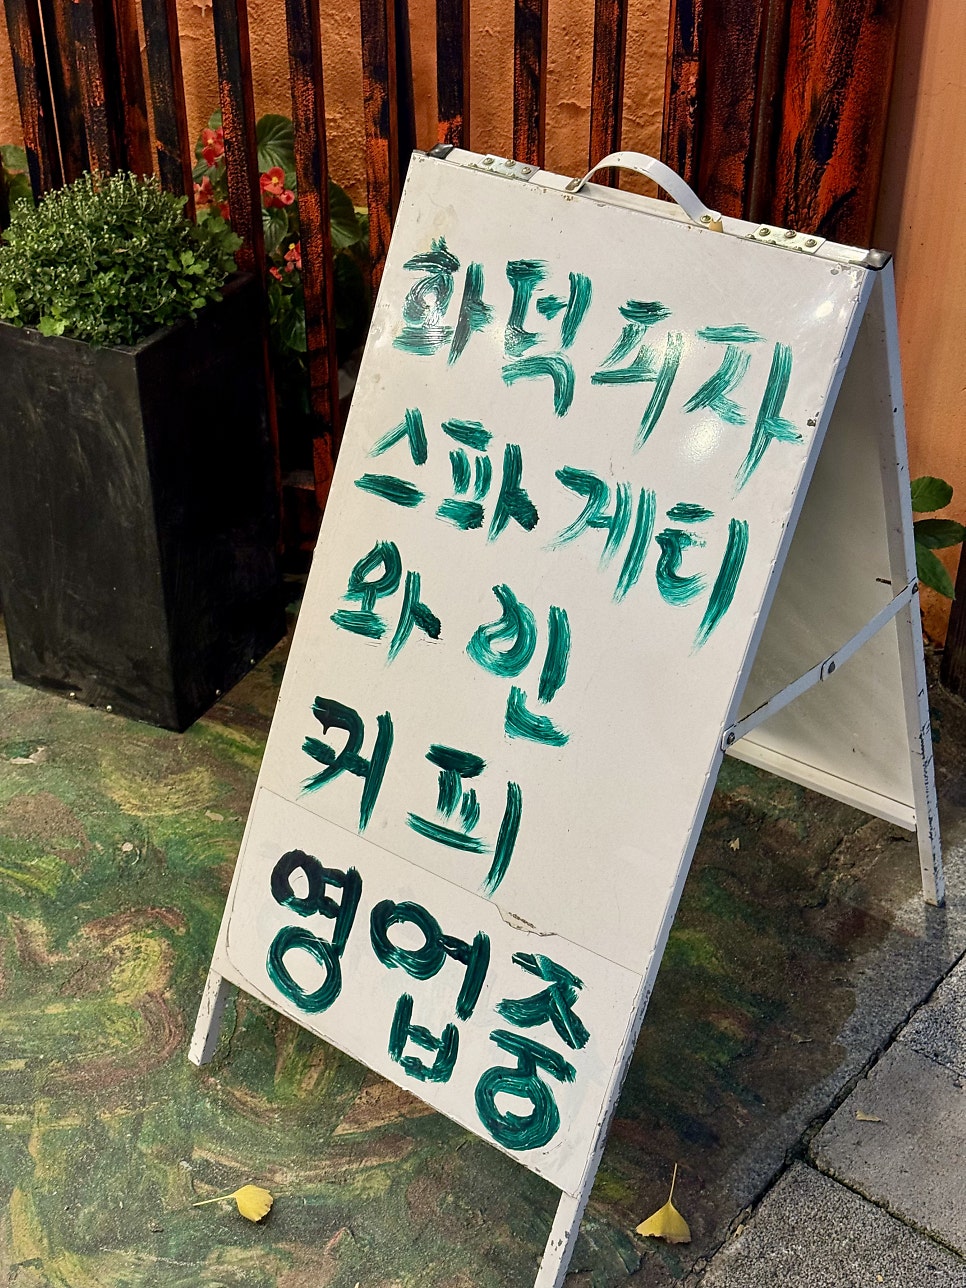 화덕피자
스파게티
와인
커피
영업중